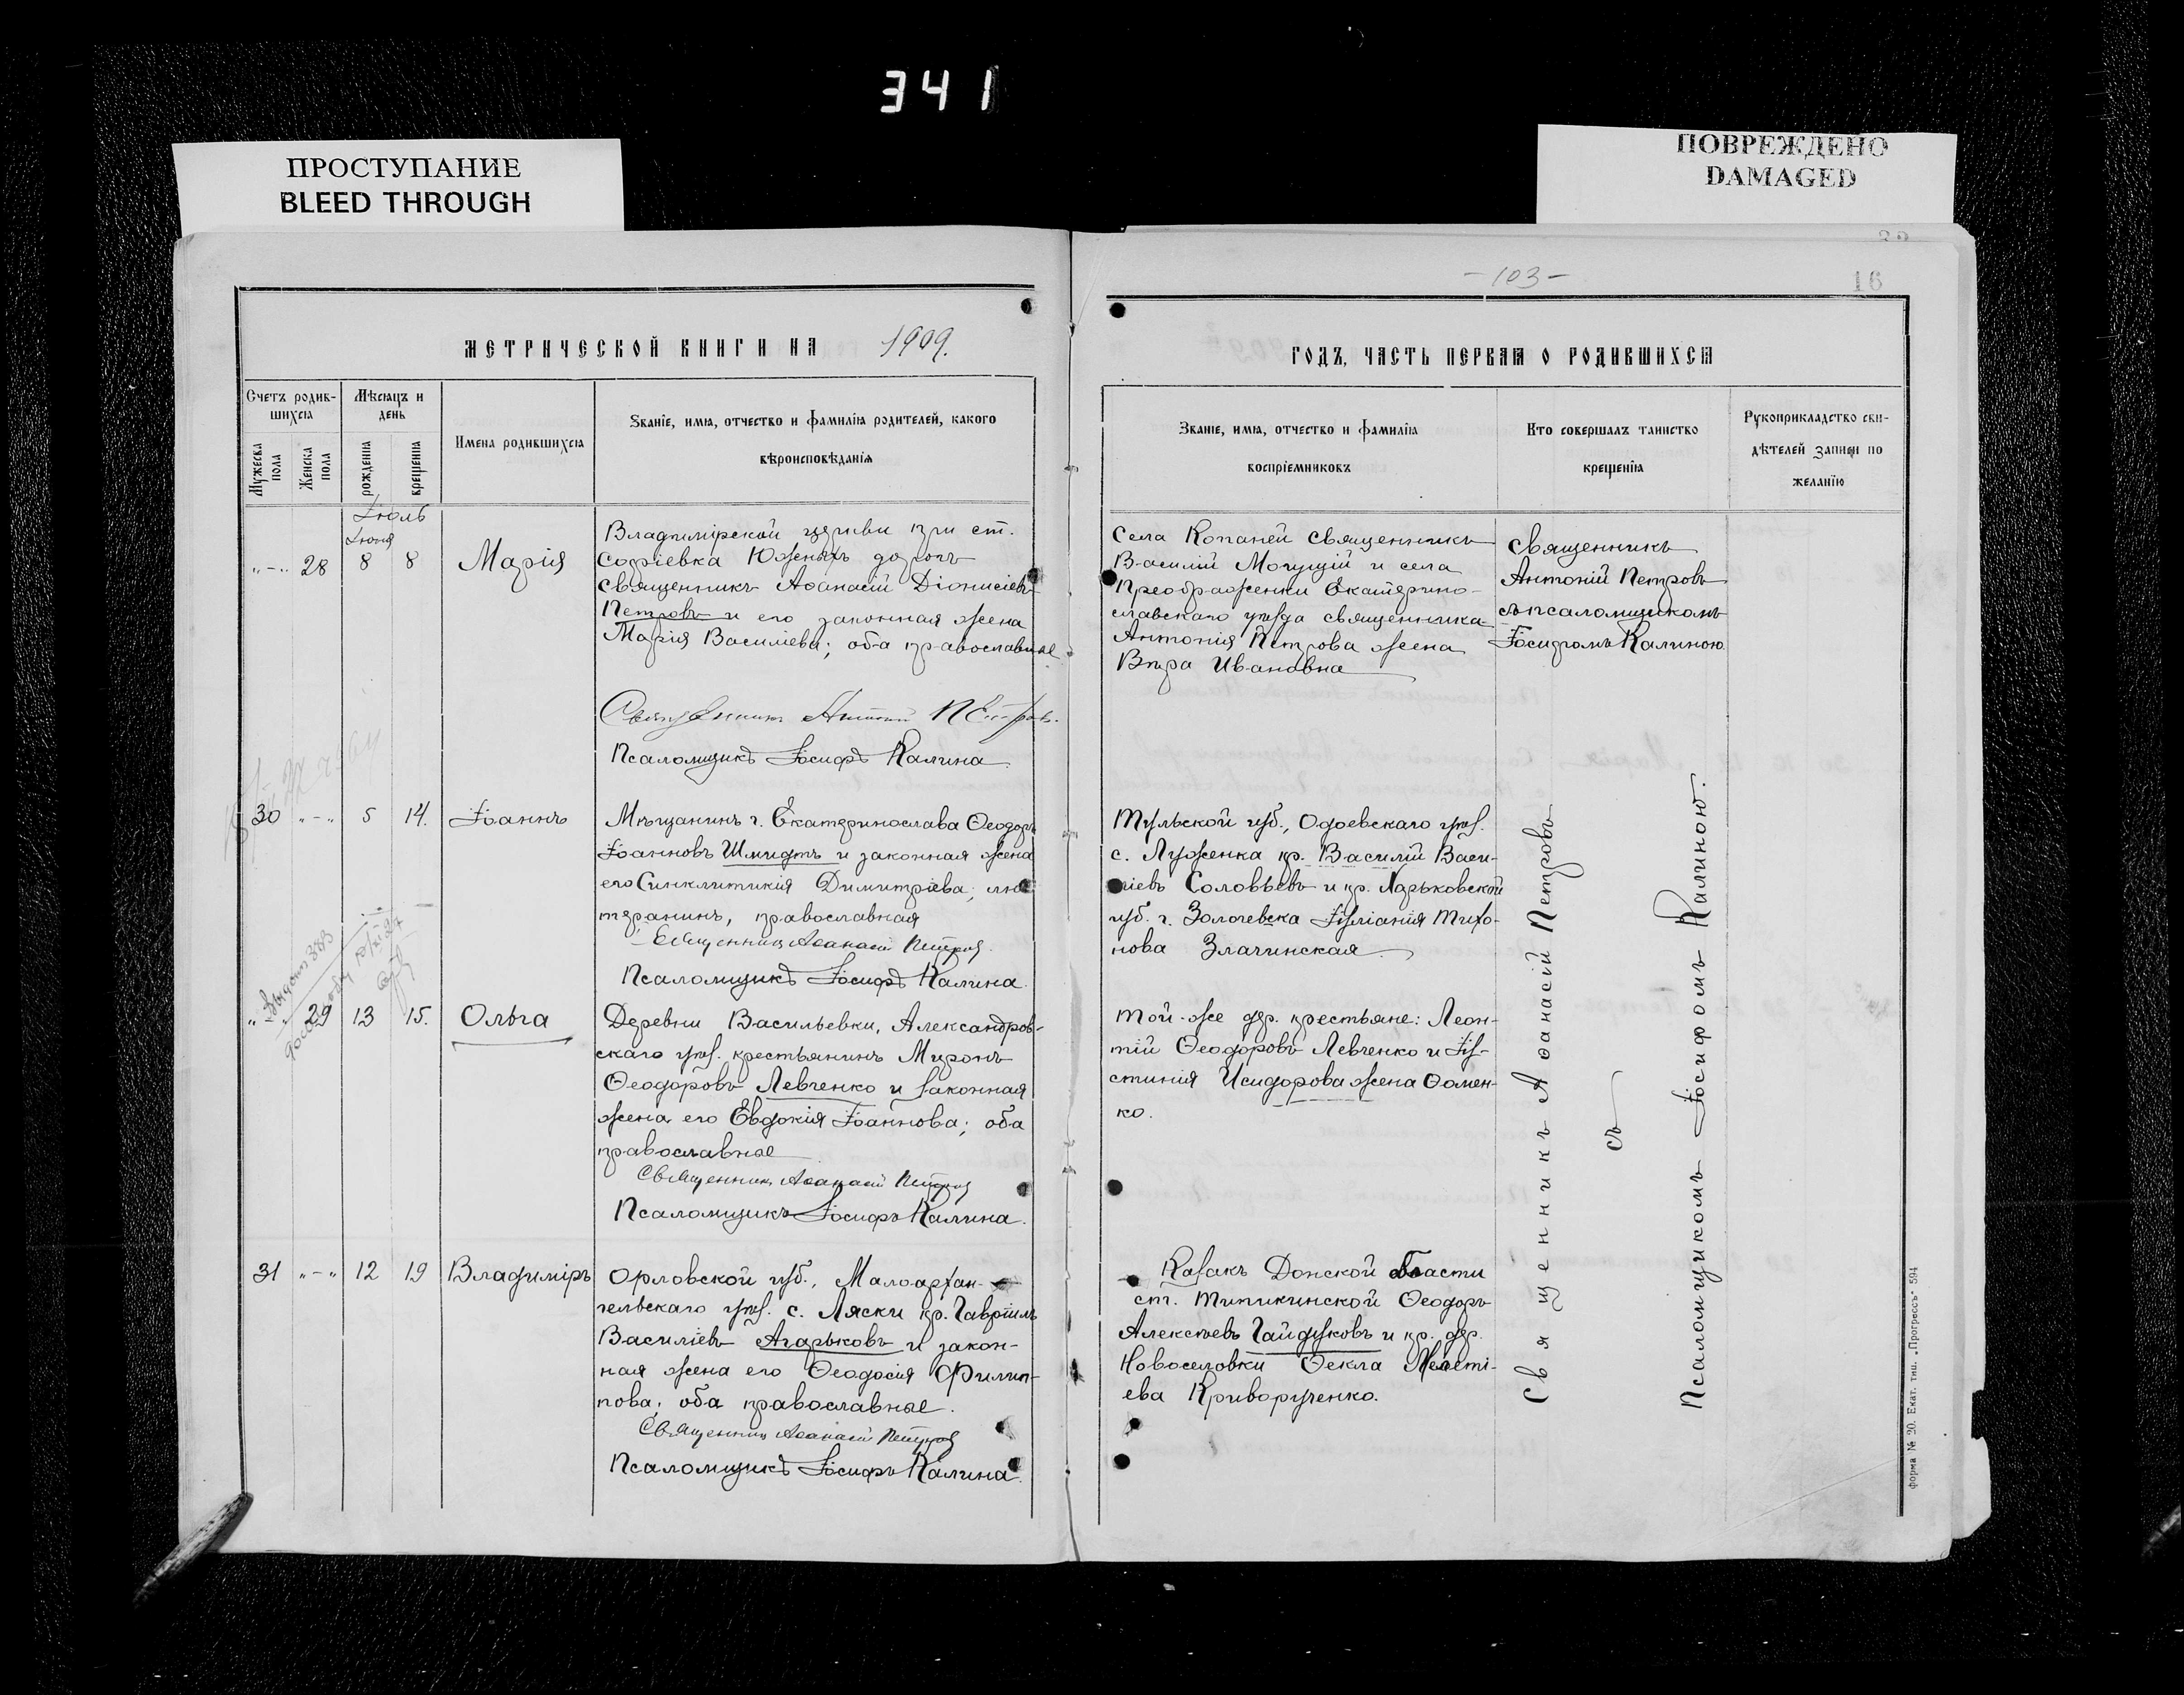 341
ПРОСТУПАНИЕ
BLEED THROUGH
ПОВРЕЖДЕНО
DAMAGED
МЕТРИЧЕСКОЙ КНИГИ НА 1909.
Счетъ родив-
шихся
Мѣсяцъ и
день
Мужеска
пола
Женска
пола
рожденія
крещенія
Имена родившихся
Званіе, имя, отчество и фамилія родителей, какого
вѣроисповѣданія
Іюль
Іюня
„-„ 28 8 8 Марія
Владимірской церкви при ст.
Софіевка Южныхъ дорогъ
священникъ Аѳанасій Діонисіевъ
Петровъ и его законная жена
Марія Василіева; оба православные
Священникъ Антоній Петровъ.
Псаломщикъ Іосифъ Калина.
30 „-„ 5 14. Іоаннъ
Мѣщанинъ г. Екатеринослава Ѳеодоръ
Іоанновъ Шмидтъ и законная жена
его Синклитикія Димитріева; лю-
теранинъ, православная
Священникъ Аѳанасій Петровъ.
Псаломщикъ Іосифъ Калина.
„-„ 29 13 15. Ольга
Деревни Васильевки, Александров-
скаго уѣз. крестьянинъ Миронъ
Ѳеодоровъ Левченко и законная
жена его Евдокія Іоаннова; оба
православные
Священникъ Аѳанасій Петровъ
Псаломщикъ Іосифъ Калина.
31 „-„ 12 19 Владиміръ
Орловской губ., Малоархан-
гельскаго уѣз. с. Ляски кр. Гавріилъ
Василіевъ Агарьковъ и закон-
ная жена его Ѳеодосія Филип-
пова; оба православные.
Священникъ Аѳанасій Петровъ
Псаломщикъ Іосифъ Калина.
-103-
16
ГОДЪ, ЧАСТЬ ПЕРВАЯ О РОДИВШИХСЯ
Званіе, имя, отчество и фамилія
воспріемниковъ
Кто совершалъ таинство
крещенія
Рукоприкладство сви-
дѣтелей записи по
желанію
Села Копаней священникъ
Василій Могущій и села
Преображенки Екатерино-
славскаго уѣзда священника
Антонія Петрова жена
Вѣра Ивановна
Священникъ
Антоній Петровъ
съ псаломщикомъ
Іосифомъ Калиною.
Тульской губ., Одоевскаго уѣз.
с. Луженка кр. Василій Васи-
ліевъ Соловьевъ и кр. Харьковской
губ. г. Золочевска Іуліанія Тихо-
нова Злачинская
Той-же дер. крестьяне: Леон-
тій Ѳеодоровъ Левченко и Іу-
стинія Исидорова жена Ѳомен-
ко.
Казакъ Донской области
ст. Типикинской Ѳеодоръ
Алексѣевъ Гайдуковъ и кр. дер.
Новоселовки Ѳекла Мелеті-
ева Криворученко.
Священникъ Аѳанасій Петровъ
съ
Псаломщикомъ Іосифомъ Калиною.
форма № 20. Екат. тип. „Прогрессъ" 594